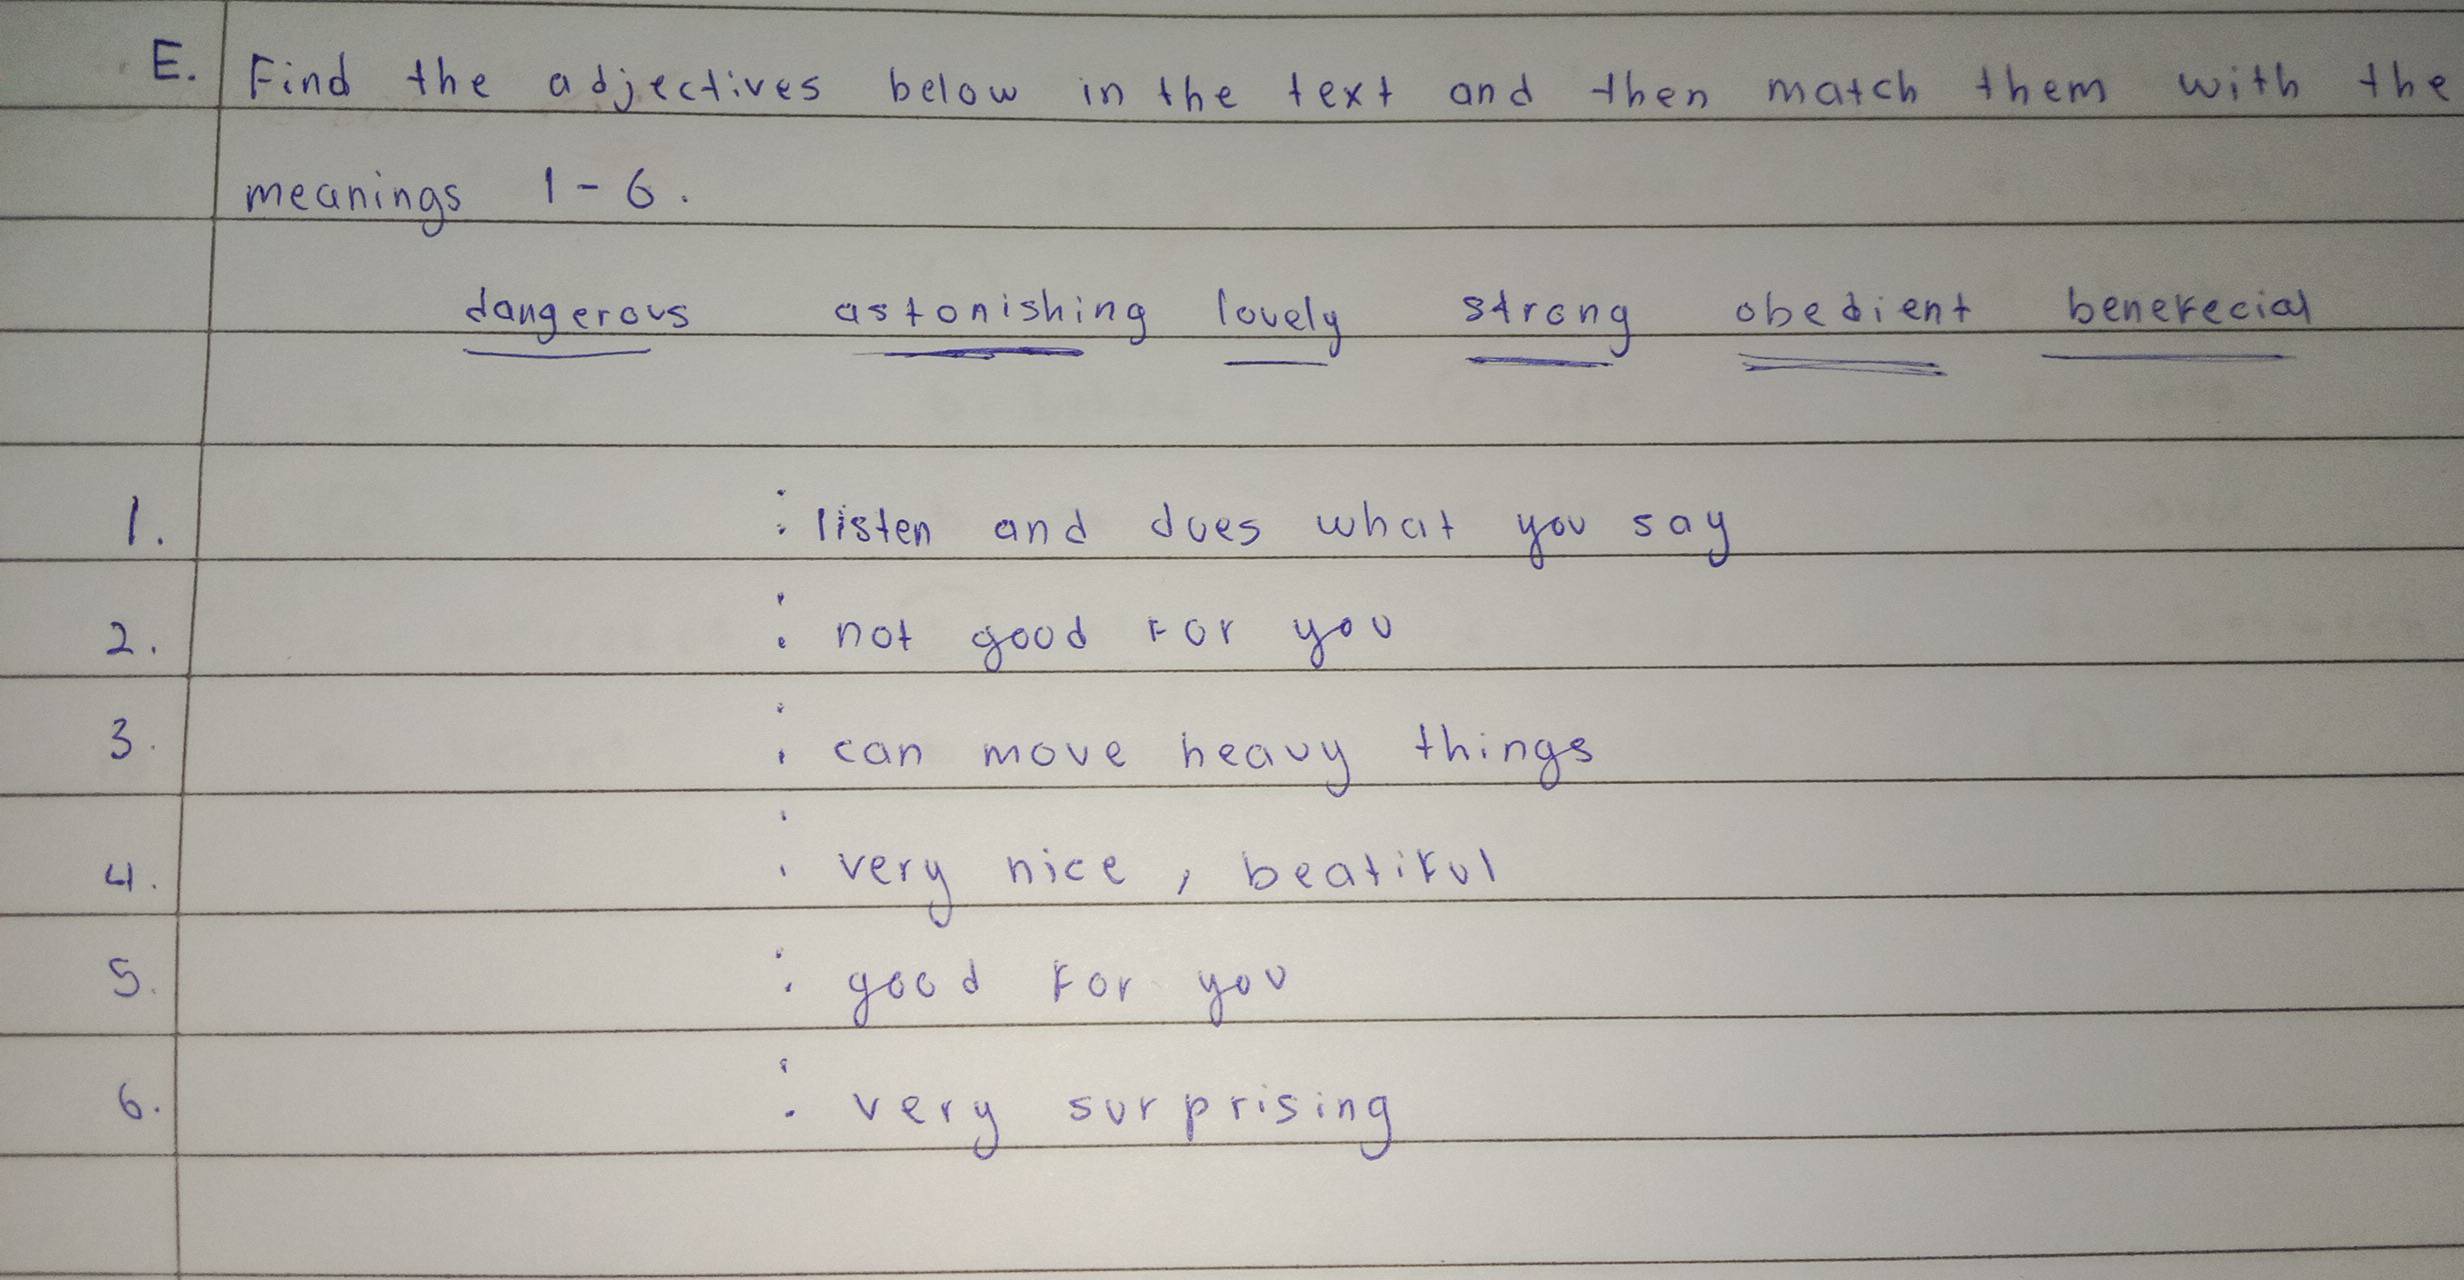 E. Find the adjectives below in the text and then match them with the
meanings 1-6.
dangerous astonishing lovely strong obedient benefecial
1. : listen and does what you say
2. : not good for you
3. : can move heavy things
4. : very nice, beatiful
5. : good for you
6. : very surprising